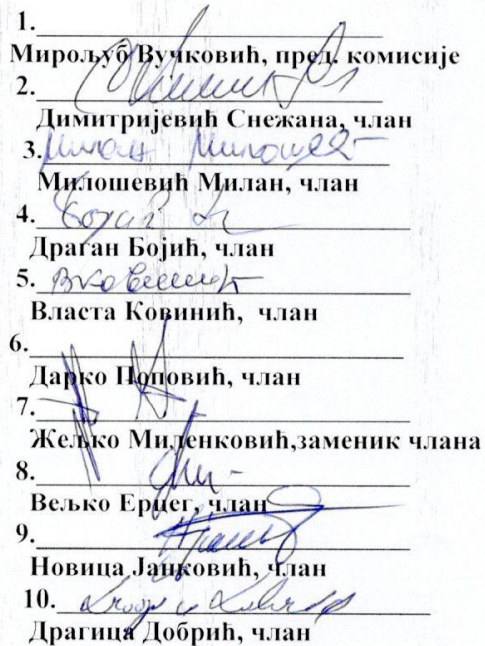 1.
Мирољуб Вучковић, пред. комисије
2.
Димитријевић Снежана, члан
3. Милан Милошевић
Милошевић Милан, члан
4. Бојић
Драган Бојић, члан
5. ВКовинић
Власта Ковинић, члан
6.
Дарко Поповић, члан
7.
Жељко Миленковић,заменик члана
8.
Вељко Ерцег, члан
9.
Новица Јанковић, члан
10.
Драгица Добрић, члан